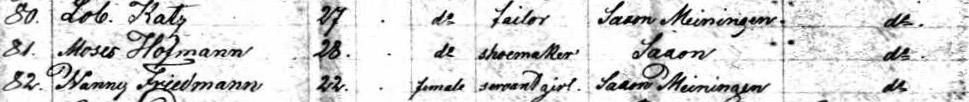 80. Lob. Katz 27 . do tailor Saxon Meiningen. do.
81. Moses Hofmann 28. do shoemaker Saxon do.
82. Nanny Friedmann 22. . female servant girl. Saxon Meiningen do